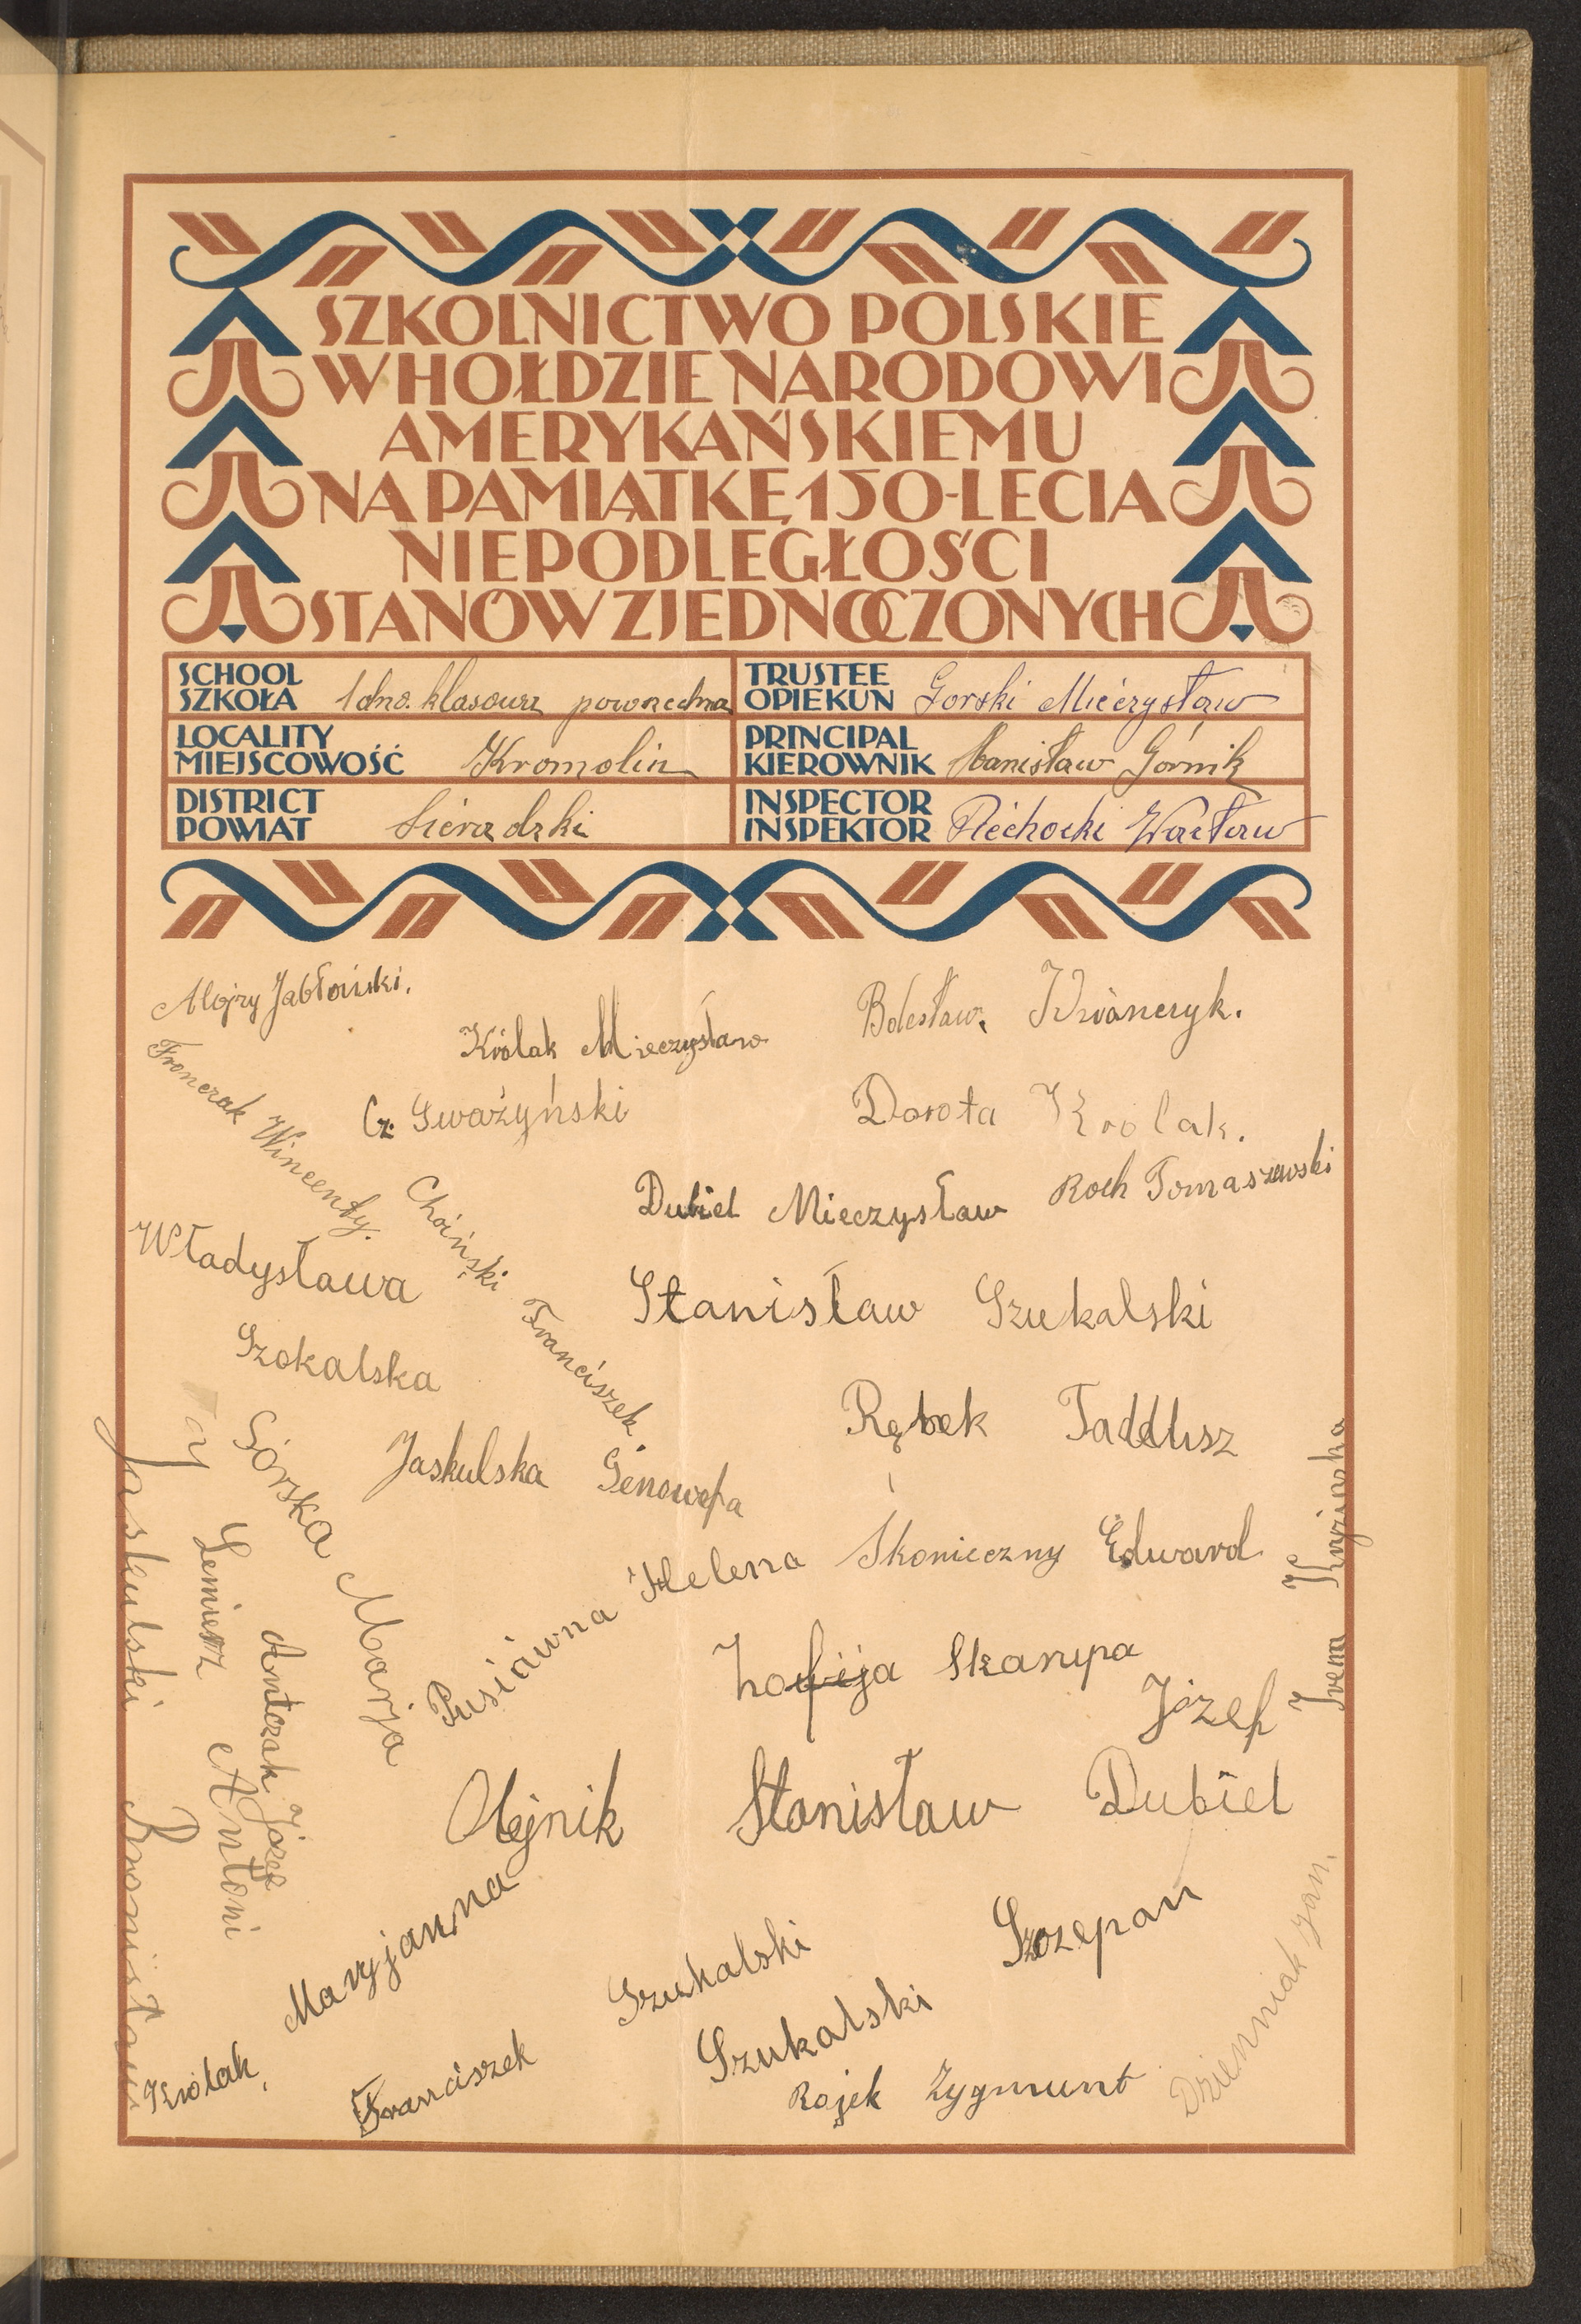 SZKOLNICTWO POLSKIE
W HOŁDZIE NARODOWI
AMERYKAŃSKIEMU
NA PAMIĄTKĘ 150-LECIA
NIEPODLEGŁOŚCI
STANÓW ZJEDNOCZONYCH
SCHOOL
SZKOŁA 1dno. klasowa powszechna
TRUSTEE
OPIEKUN Gorski Mieczysław
LOCALITY
MIEJSCOWOŚĆ Kromolin
PRINCIPAL
KIEROWNIK Stanisław Górnik
DISTRICT
POWIAT Sieradzki
INSPECTOR
INSPEKTOR Piechocki Wacław
Alojzy Jabłoński.
Królak Mieczysław
Bolesław. Iwańczyk.
Fronczak Wincenty.
Cz. Gważyński
Dorota Krolak.
Choiński Franciszek
Dubiel Mieczysław
Roch Tomaszewski
Władysława
Szokalska
Stanisław Szukalski
Górska Marja
Jaskulska Genowefa
Rębek Taddusz
Jaskulski Bronisław
Lemiesz Antoni
Antczak Józef
Pusiówna Helena
Skonieczny Edward
Irena
Zofija Skarupa
Józef
Olejnik
Stanisław Dubiel
Królak, Maryjanna
Franciszek Szukalski
Szukalski Szczepan
Rojek Zygmunt
Dzienniak Jan.